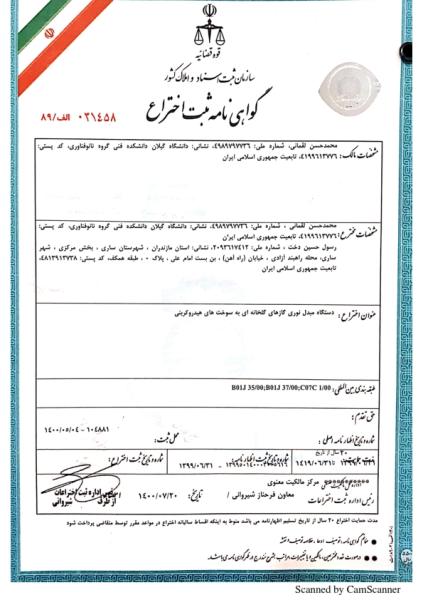 قوه قضائیه
سازمان ثبت اسناد و املاک کشور
گواهی نامه ثبت اختراع
۰۳۱۴۵۸ الف/۸۹
مشخصات مالک: محمدحسن لقمانی، شماره ملی: ۴۹۸۹۷۹۷۷۳۶، نشانی: دانشگاه گیلان دانشکده فنی گروه نانوفناوری، کد پستی:
۴۱۹۹۶۱۳۷۷۶، تابعیت جمهوری اسلامی ایران
مشخصات مخترع: محمدحسن لقمانی، شماره ملی: ۴۹۸۹۷۹۷۷۳۶، نشانی: دانشگاه گیلان دانشکده فنی گروه نانوفناوری، کد پستی:
۴۱۹۹۶۱۳۷۷۶، تابعیت جمهوری اسلامی ایران
رسول حسین دخت ، شماره ملی: ۲۰۹۳۶۱۷۴۱۲، نشانی: استان مازندران ، شهرستان ساری ، بخش مرکزی ، شهر
ساری، محله راهبند آزادی ، خیابان (راه آهن) ، بن بست امام علی ، پلاک ۰ ، طبقه همکف، کد پستی: ۴۸۱۳۹۱۳۷۳۸،
تابعیت جمهوری اسلامی ایران
عنوان اختراع: دستگاه مبدل نوری گازهای گلخانه ای به سوخت های هیدروکربنی
طبقه بندی بین المللی: B01J 35/00;B01J 37/00;C07C 1/00
حق تقدم:
شماره و تاریخ اظهارنامه اصلی:
محل ثبت: ۱۰۴۸۸۱ - ۱۴۰۰/۰۵/۰۴
شماره و تاریخ ثبت اظهارنامه: - ۱۳۹۹/۰۶/۳۱
شماره و تاریخ ثبت اختراع:
۲۰ سال از تاریخ
تا ۱۴۱۹/۰۶/۳۱
مرکز مالکیت معنوی
رئیس اداره ثبت اختراعات معاون فرحناز شیروانی / تاریخ: ۱۴۰۰/۰۷/۲۰
اداره ثبت اختراعات
از طرف شیروانی
مدت حمایت اختراع ۲۰ سال از تاریخ تسلیم اظهارنامه می باشد منوط به اینکه اقساط سالیانه اختراع در مواعد مقرر توسط متقاضی پرداخت شود
Scanned by CamScanner